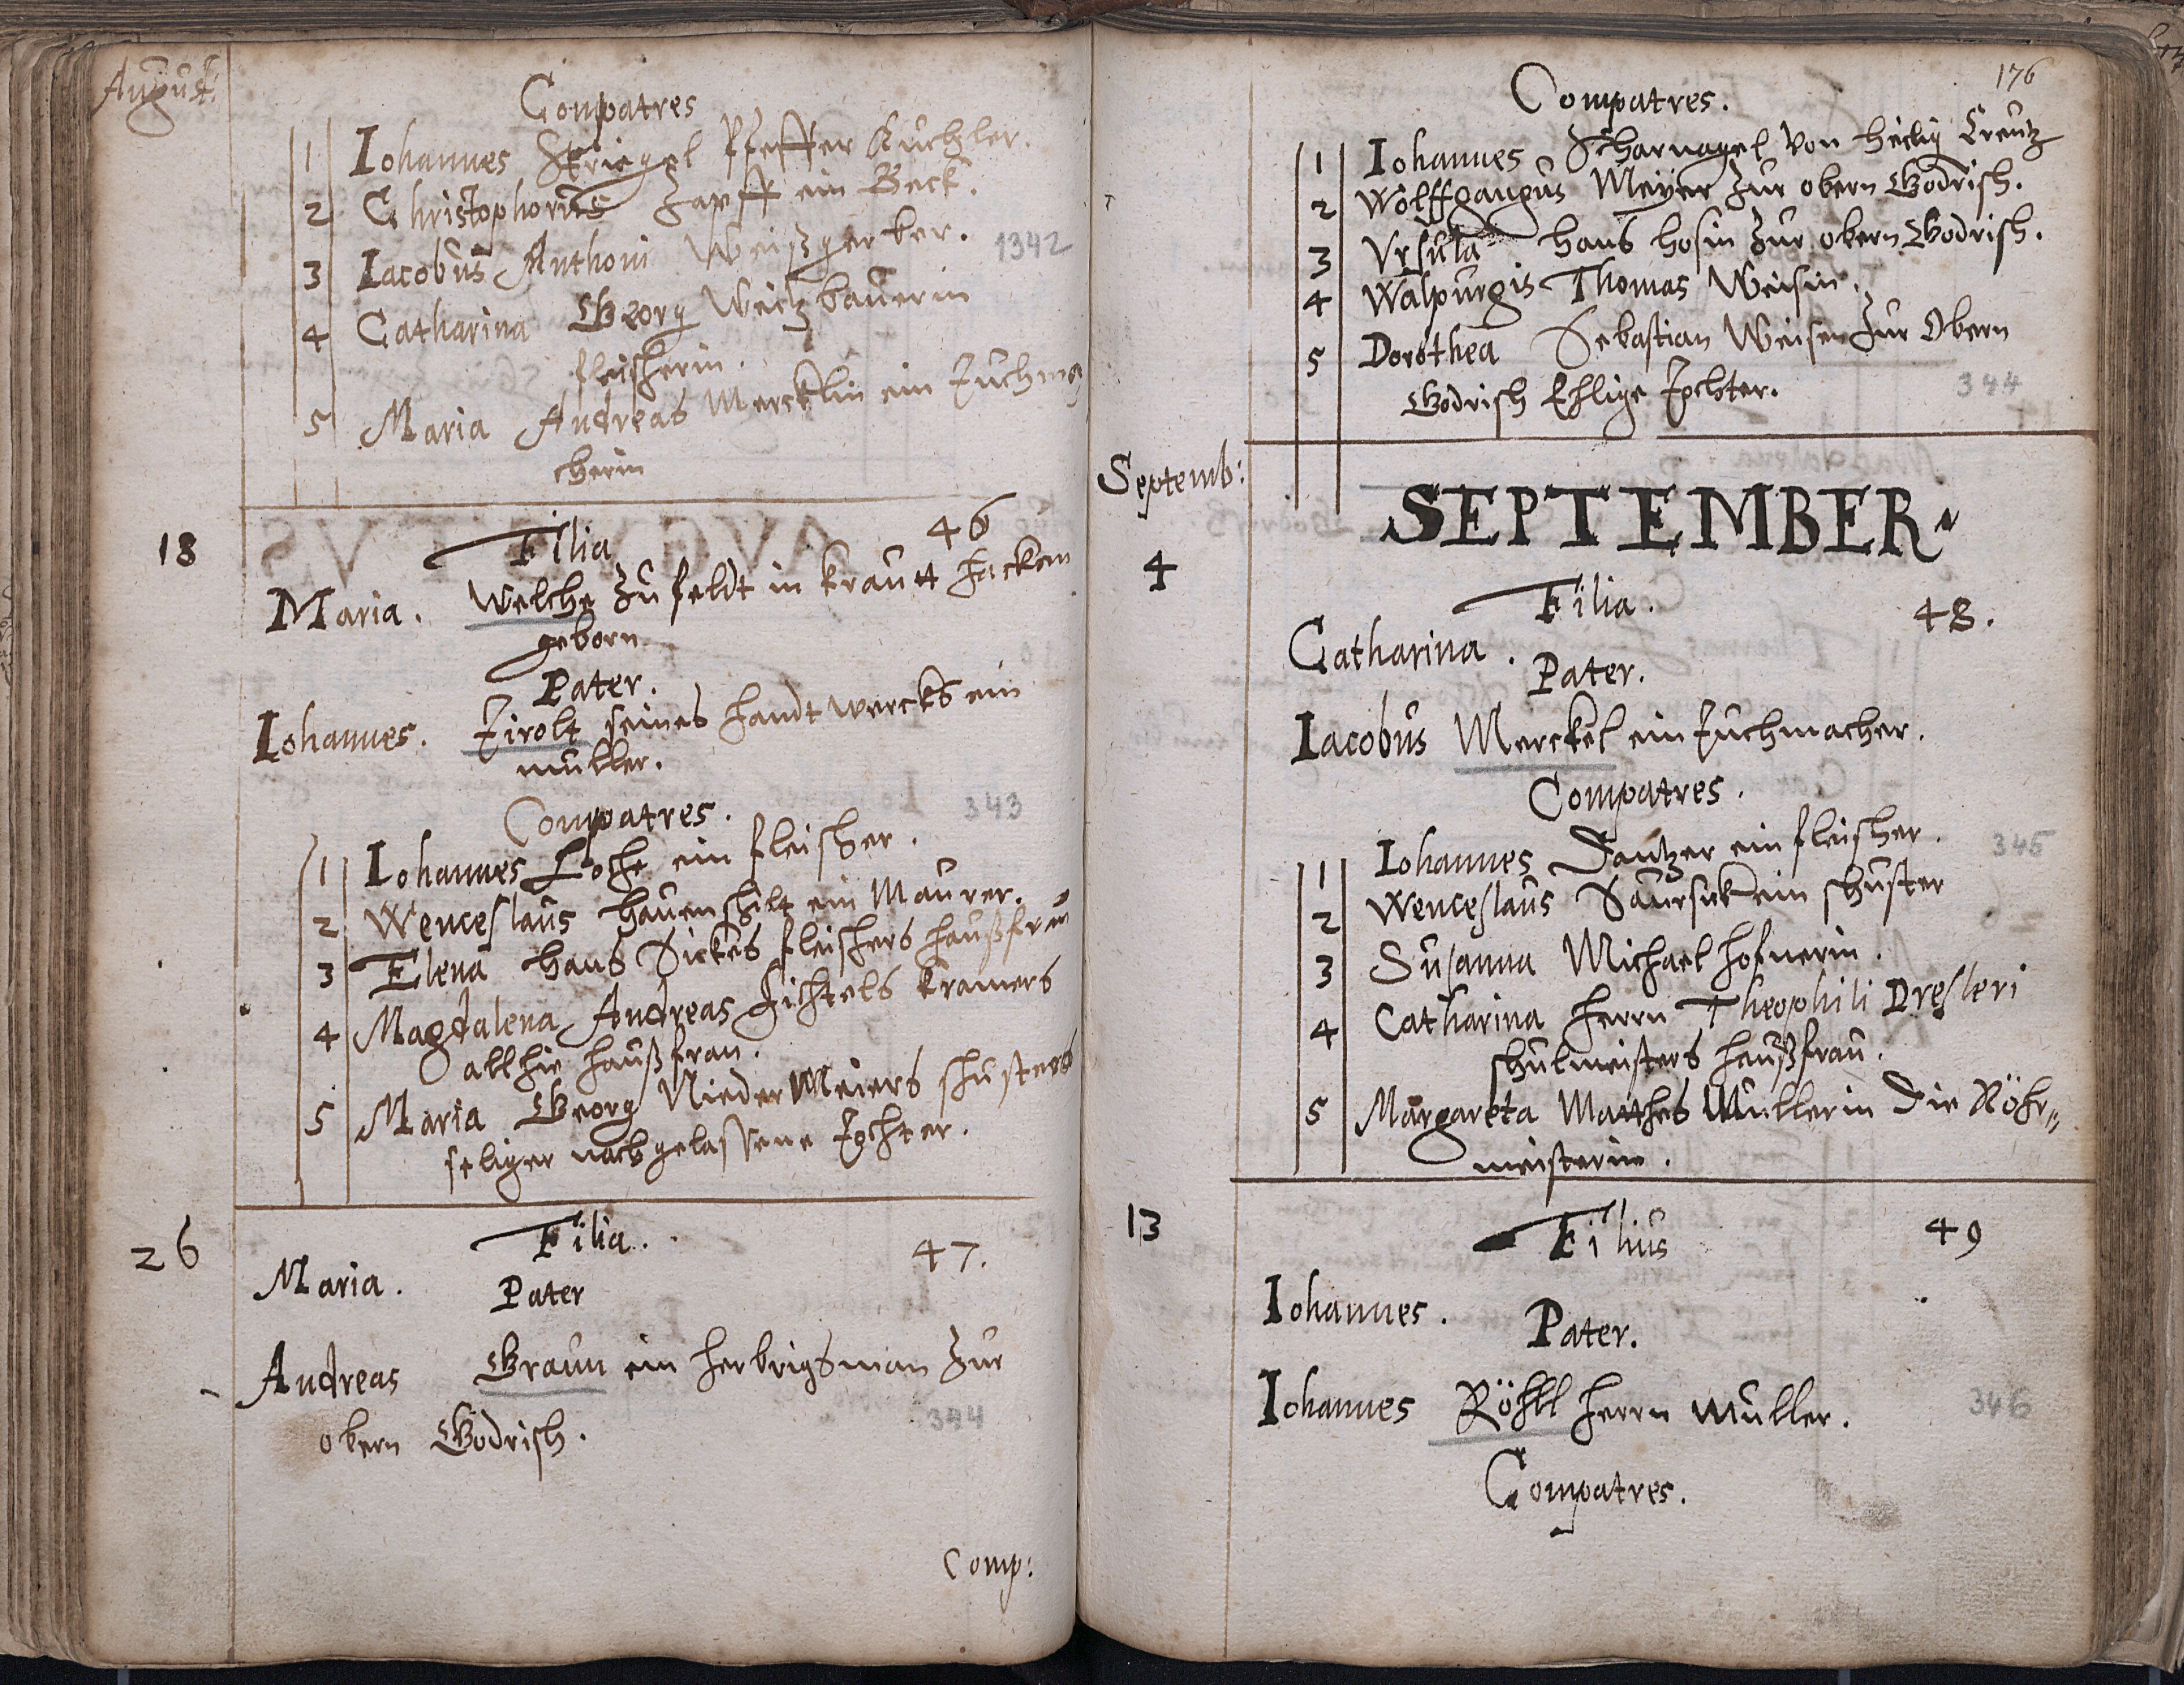 August:
Compatres
1 Iohannes Striegel Pfeffer Kuchler.
2 Christophorus Zapff ein Beck.
3 Iacobus Anthoni Weißgerber. 1342
4 Catharina Georg Weitzbauerin
fleischerin.
5 Maria Andreas Mercklin ein Tuchma
cherin
18 Filia 46
Maria. Welche zu feldt in krautt hacken
geborn
Pater.
Iohannes. Tirolt seines handtwercks ein
muller.
Compatres. 343
1 Iohannes Losch ein fleischer.
2 Wenceslaus Hauenschilt ein Maurer.
3 Elena Hans Dickes fleischers haußfrau
4 Magdalena Andreas Fichtels kramers
allhie haußfrau.
5 Maria Georg NiederMeiers schusters
seliger nachgelassene Tochter.
26 Filia. 47.
Maria.
Pater
Andreas Braun ein herbrigsman zur
obern Godrisch. 344
Comp:
176
Compatres.
1 Iohannes Scharnagel von heilig Creutz
2 Wolffgangus Meyer zur obern Godrisch.
3 Ursula Hans Hosin zur obern Godrisch.
4 Walpurgis Thomas Weisin.
5 Dorothea Sebastian Weisen zur Obern
Godrisch Ehlige Tochter. 344
Septemb:
SEPTEMBER
4 Filia. 48.
Catharina.
Pater.
Iacobus Merckel ein Tuchmacher.
Compatres.
1 Iohannes Dantzer ein fleischer. 345
2 Wenceslaus ein schuster
3 Susanna Michael Hofnerin.
4 Catharina Herrn Theophili Dresleri
schulmeisters haußfrau.
5 Margareta Matthes Mullerin die Röhr„
meisterin.
13 Filius 49
Iohannes.
Pater.
Iohannes Röhll Herrn Muller. 346
Compatres.